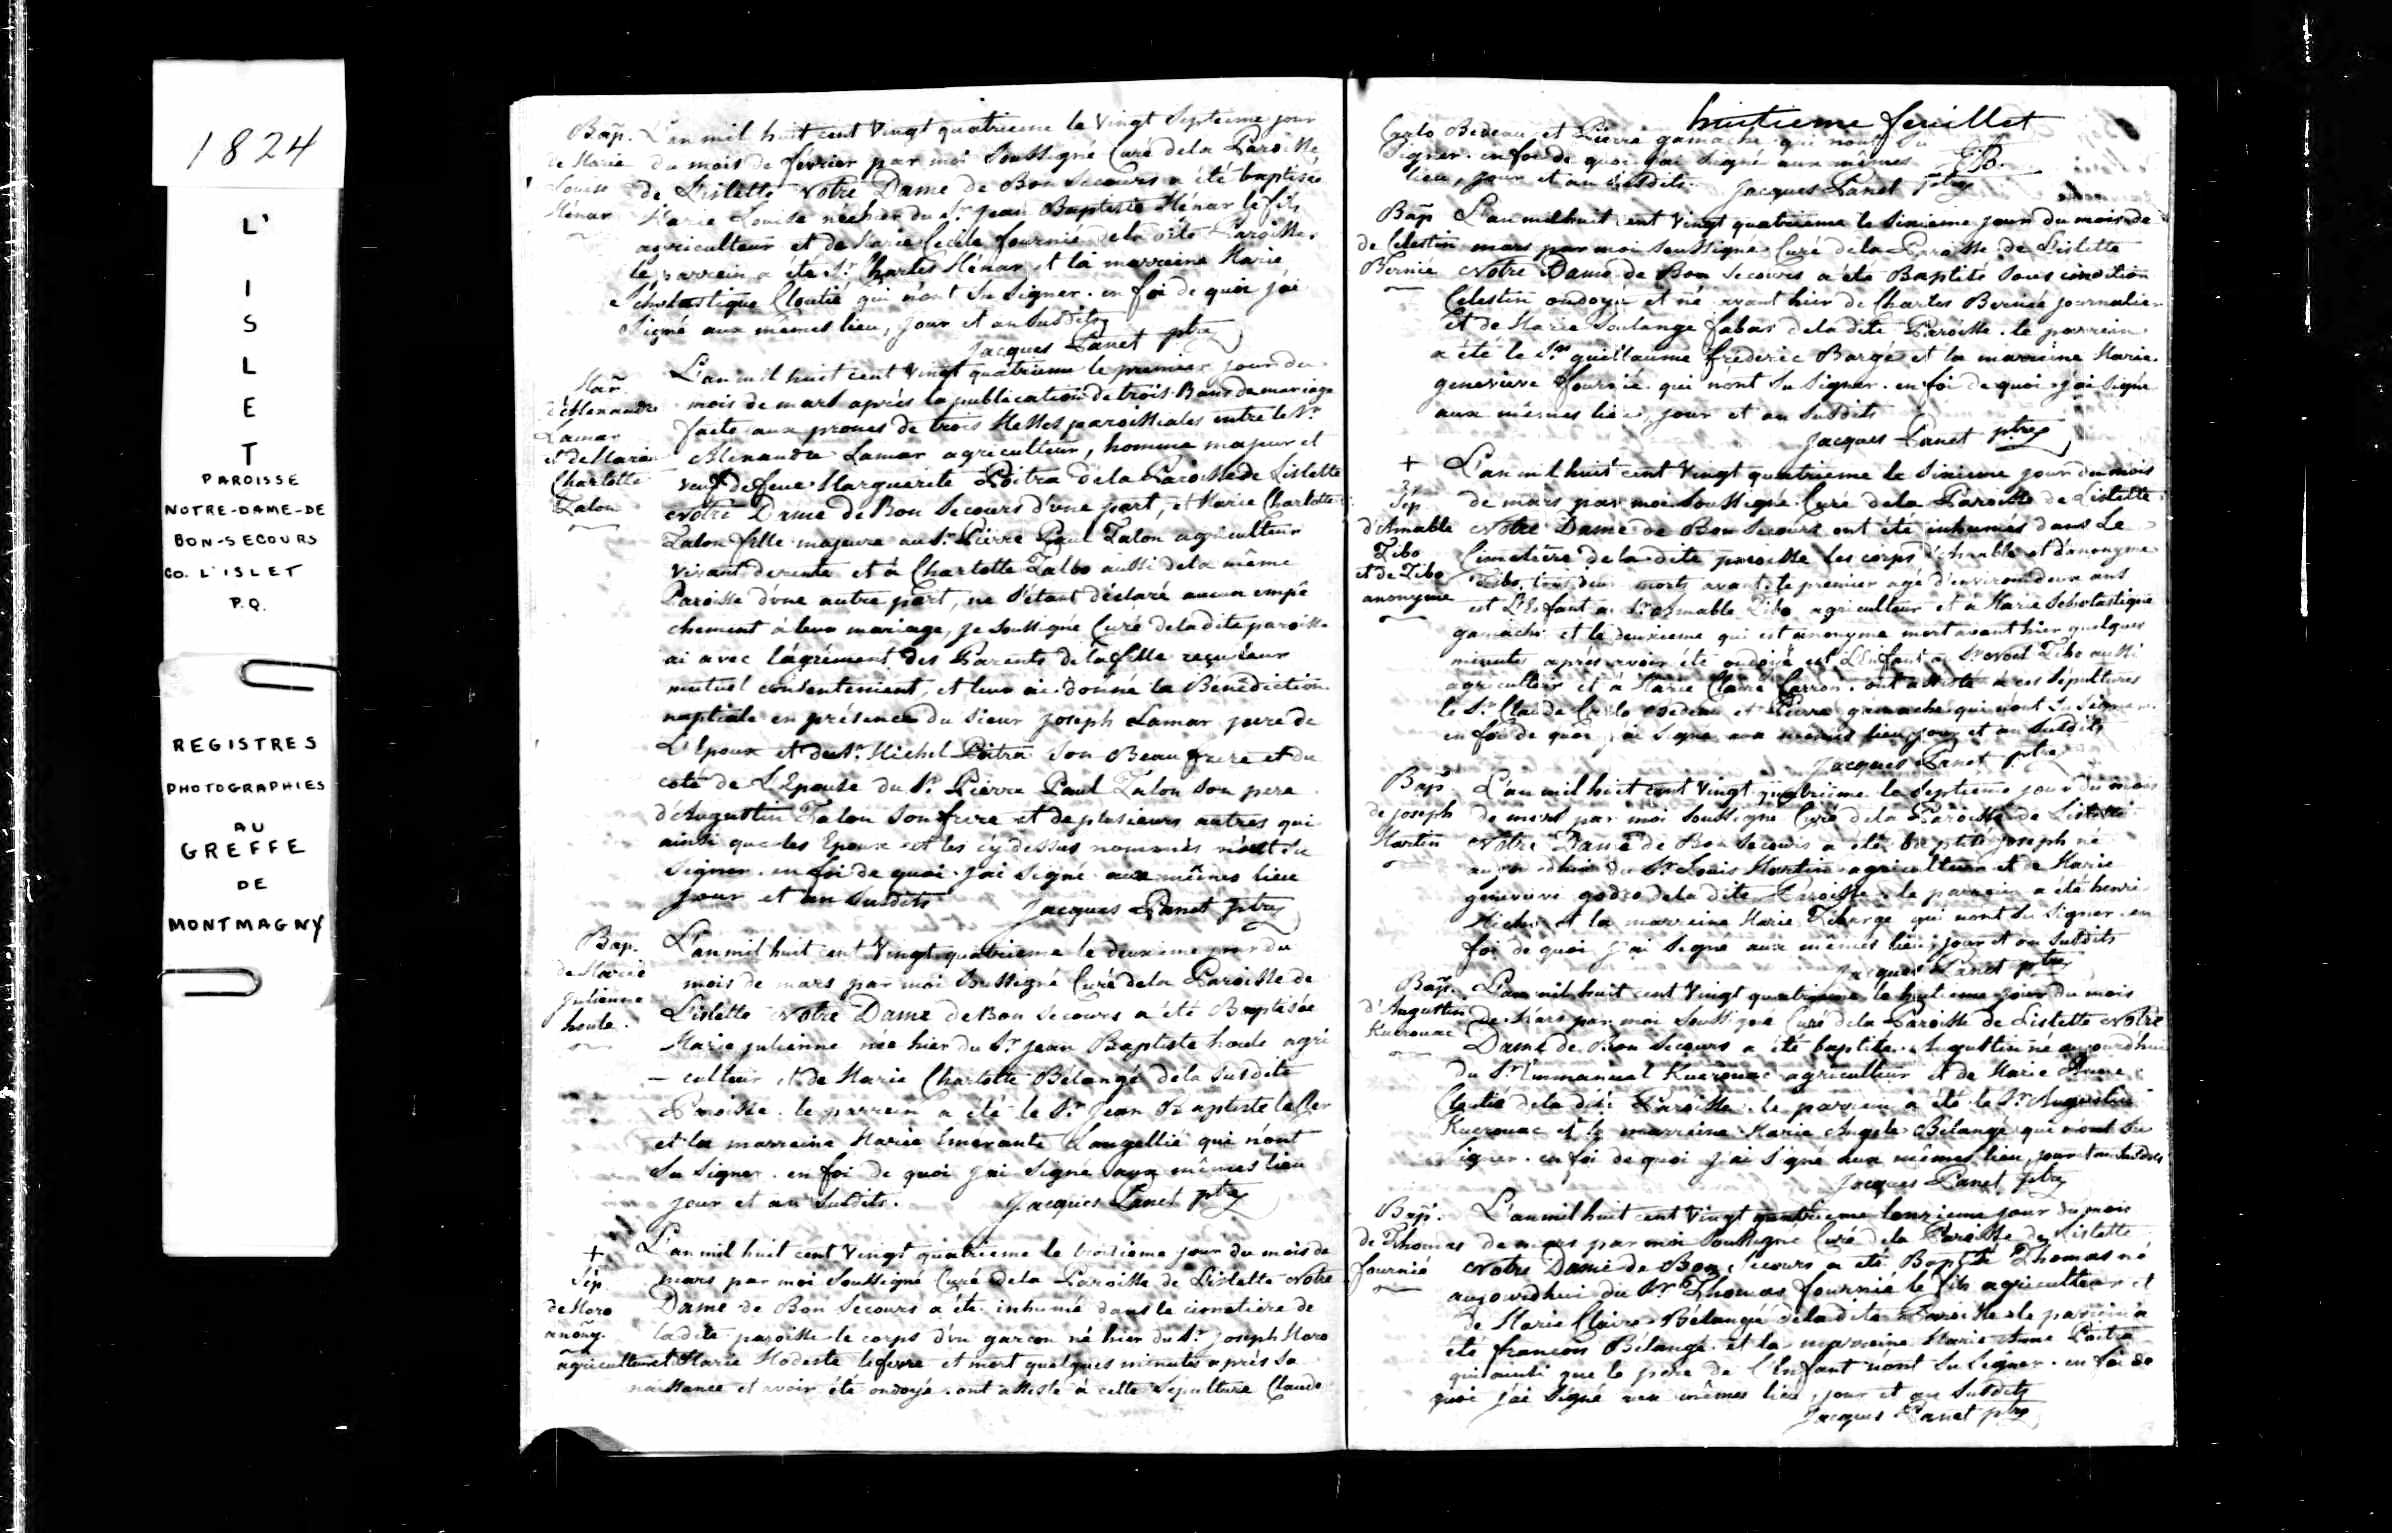 1824
L'
I
S
L
E
T
PAROISSE
NOTRE-DAME-DE
BON-SECOURS
CO. L'ISLET
P.Q.
REGISTRES
PHOTOGRAPHIES
AU
GREFFE
DE
MONTMAGNY
Bap̃. L'an mil huit cent vingt quatrieme le vingt septieme jour
de Marie du mois de fevrier par moi Soussigné Curé dela Paroisse
Louise de Lislette Notre Dame de Bon Secours a été baptisée
Ménar Marie Louise née hier du Sr. Jean Baptiste Ménar le fils
agriculteur et de Marie Cecile fournié dela dite Paroisse.
le parrein a été Sr. Charles Ménar et la marreine Marie
Scholastique Cloutié qui n'ont Su Signer. en foi de quoi j'ai
Signé aux mêmes lieu, jour et an Susdits
Jacques Panet ptre
L'an mil huit cent vingt quatrieme le premier jour du
Mar̃ mois de mars après la publication de trois Bans de mariage
d'Alexandre faite aux prones de trois Messes paroissiales entre le Sr.
Lamar Alexandre Lamar agriculteur, homme majeur et
et de Marie veuf de feue Marguerite Poitra dela Paroisse de Lislette
Charlotte Notre Dame de Bon Secours d'une part, et Marie Charlotte
Talon Talon fille majeure au Sr. Pierre Paul Talon agriculteur
vivant de rente et à Charlotte Talbo aussi dela même
Paroisse d'une autre part, ne S'étant déclaré aucun empê
chement à leur mariage, je Soussigné Curé dela dite paroisse
ai avec l'agrément des Parents dela fille reçu leur
mutuel consentement, et leur ai donné la Bénédiction
nuptiale en présence du Sieur joseph Lamar pere de
L'Epoux et du Sr. Michel Poitra Son Beau frere et du
coté de L'Epouse du Sr. Pierre Paul Talon Son pere
d'Augustin Talon Son frere et de plusieurs autres qui
ainsi que les Epoux et les cy dessus nommés n'ont Su
Signer. en foi de quoi j'ai Signé aux mêmes lieu
jour et an Susdits Jacques Panet ptre
Bap. L'an mil huit cent vingt quatrieme le deuxieme jour du
de Marie mois de mars par moi Soussigné Curé dela Paroisse de
julienne Lislette Notre Dame de Bon Secours a été Baptisée
houle. Marie julienne née hier du Sr. jean Baptiste houle agri
– culteur et de Marie Charlotte Bélangé dela Susdite
Paroisse. le parrein a été le Sr. Jean Baptiste
et la marreine Marie Emérante Langellié qui n'ont
Su Signer. en foi de quoi j'ai Signé aux mêmes lieu
jour et an Susdits. Jacques Panet ptre
+ L'an mil huit cent vingt quatrieme le troisieme jour du mois de
Sép. mars par moi Soussigné Curé dela Paroisse de Lislette Notre
de Moro Dame de Bon Secours a été inhumé dans le cimetière de
anony. ladite paroisse le corps d'un garcon né hier du Sr. joseph Moro
agriculteur et Marie Modeste lefevre et mort quelques minutes après Sa
naissance et avoir été ondoyé. ont assisté à cette Sépulture Claude
huitieme feuillet
Carlo Bedeau et Pierre gamache qui n'ont Su
Signer. en foi de quoi j'ai Signé aux mêmes
lieu, jour et an Susdits. Jacques Panet ptre
Bap̃ L'an mil huit cent vingt quatrieme le Sixieme jour du mois de
de Celestin mars par moi Soussigné Curé dela Paroisse de Lislette
Bernié Notre Dame de Bon Secours a été Baptisé Sous condition
Celestin ondoyé et né avant hier de Charles Bernié journalier
et de Marie Soulange dela dite Paroisse. le parrein
a été le Sr. guillaume frederic Bargé et la marreine Marie
genevieve fournié. qui n'ont Su Signer. en foi de quoi j'ai Signé
aux mêmes lieu, jour et an Susdits
Jacques Panet ptre
+ L'an mil huit cent vingt quatrieme le Sixieme jour du mois
Sep de mars par moi Soussigné Curé dela Paroisse de Lislette
d'Amable Notre Dame de Bon Secours ont été inhumés dans Le
Zibo Cimetière dela dite paroisse les corps d'Amable et d'anonyme
et de Zibo Zibo, tous deux morts avant le premier agé d'environ deux ans
anonyme est L'Enfant a Sr. amable Zibo agriculteur et à Marie Scholastique
gamache et le deuxieme qui est anonyme mort avant hier quelques
minutes après avoir été ondoyé est L'Enfant a Sr. Noel Zibo aussi
agriculteur et à Marie Claire Carron. ont assisté a ces Sépultures
le Sr. Claude Carlo Bedeau et Pierre gamache qui n'ont Su Signer
en foi de quoi j'ai Signé aux mêmes lieu, jour et an Susdits
Jacques Panet ptre
Bap̃ L'an mil huit cent vingt quatrieme le Septieme jour du mois
de joseph de mars par moi Soussigné Curé dela Paroisse de Lislette
Martin Notre Dame de Bon Secours a été baptisé joseph né
aujourdhui du Sr. Louis Martin agriculteur et de Marie
genevieve godro dela dite Paroisse. le parrein a été henri
et la marreine Marie qui n'ont Su Signer. en
foi de quoi j'ai Signé aux mêmes lieu, jour et an Susdits
Jacques Panet ptre
Bap̃. L'an mil huit cent vingt quatrieme le huitieme jour du mois
d'Augustin de Mars par moi Soussigné Curé dela Paroisse de Lislette Notre
Kuerouac Dame de Bon Secours a été baptisé Augustin né aujourdhui
du Sr. Emmanuel Kuerouac agriculteur et de Marie
Cloutié dela dite Paroisse. le parrein a été le Sr. Augustin
Kuerouac et la marreine Marie Angele Bélangé qui n'ont Su
Signer. en foi de quoi j'ai Signé aux mêmes lieu, jour et an Susdits
Jacques Panet ptre
Bap̃. L'an mil huit cent vingt quatrieme lonzieme jour du mois
de Thomas de mars par moi Soussigné Curé dela Paroisse de Lislette
fournié Notre Dame de Bon Secours a été Baptisé Thomas né
aujourdhui du Sr. Thomas fournié le fils agriculteur et
de Marie Claire Bélangé dela dite Paroisse. le parrein a
été francois Bélangé et la marreine Marie Anne Poitra
qui ainsi que le pere de l'Enfant n'ont Su Signer. en foi de
quoi j'ai Signé aux mêmes lieu, jour et an Susdits
Jacques Panet ptre